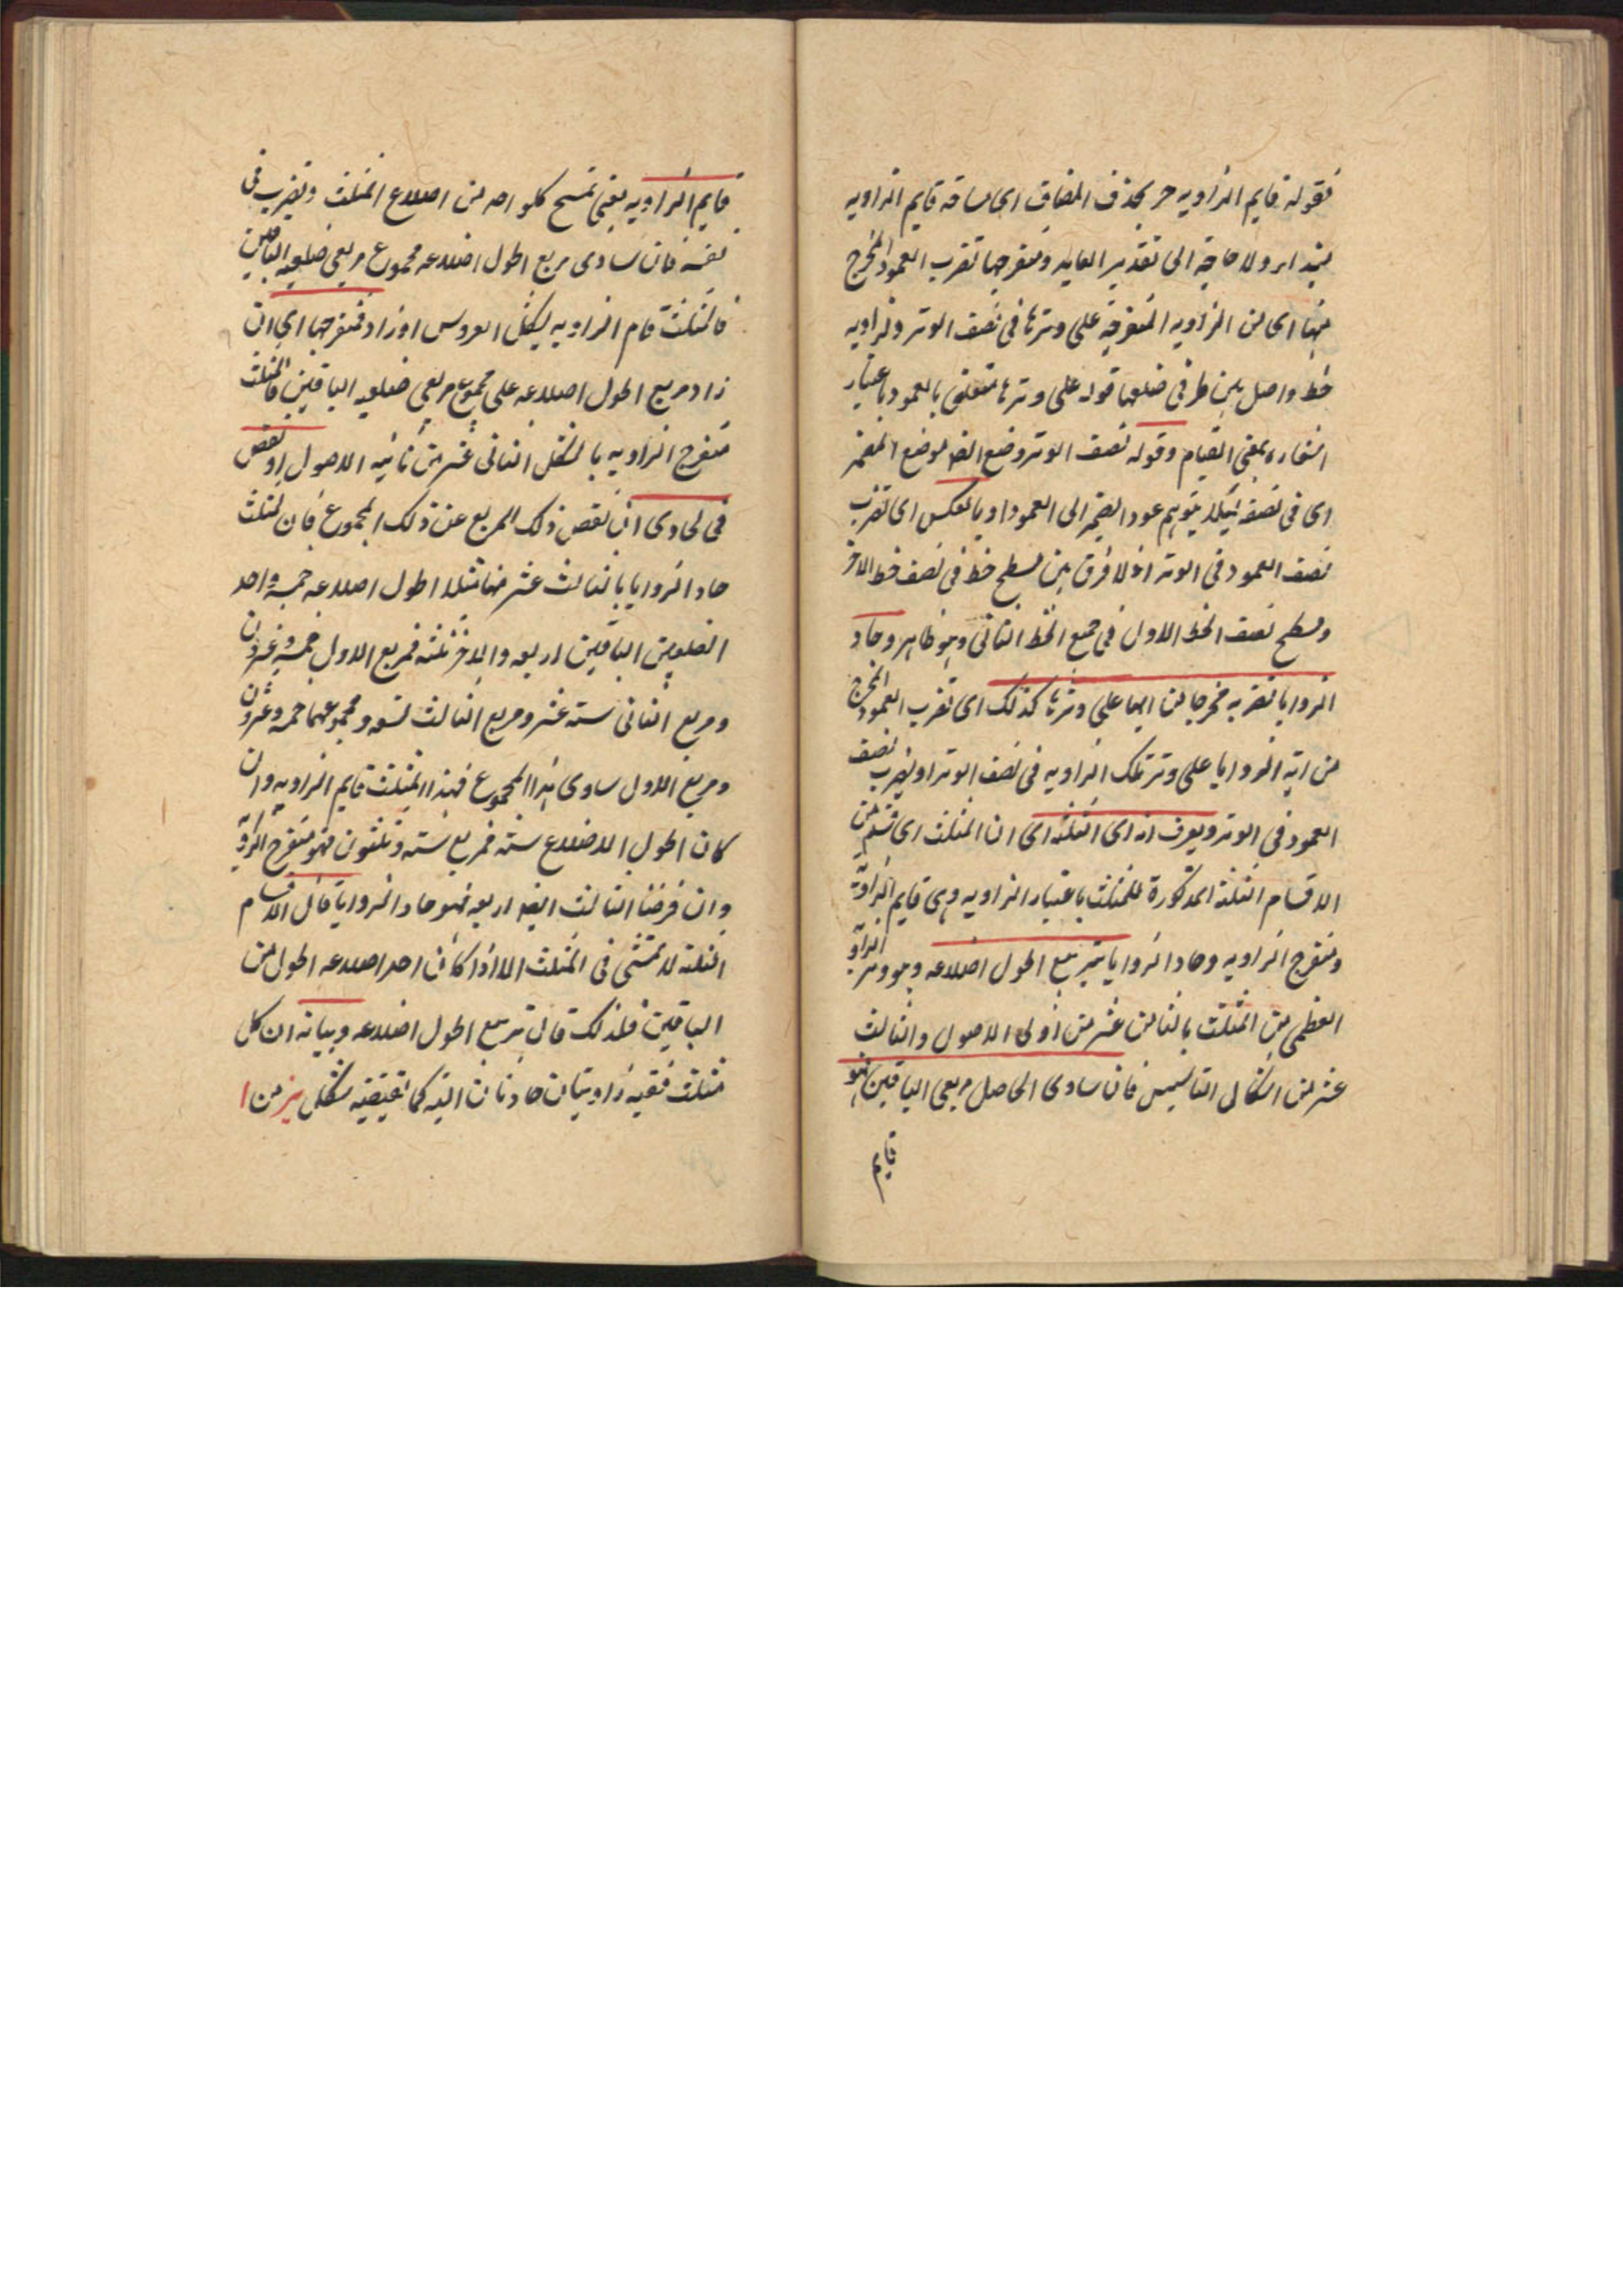 فقوله قايم الزاويه حر بحذف المضاف اى مساحة قايم الزاويه
مبتداء ولا حاجة الى تقدير العايد ومنفرجها تضرب العمود المخرج
منها اى من الزاويه المنفرجه على وترها فى نصف الوتر وتر الزاويه
خط واصل بين طرفى ضلعيها قوله على وترها متعلق بالعمود باعتبار
اشعاره بمعنى القيام وقوله نصف الوتر وضع المظهر موضع المضمر
اى فى نصفه لئلا يتوهم عود الضمير الى العمود او بالعكس اى تضرب
نصف العمود فى الوتر اذ لا فرق بين مسطح خط فى نصف خط الاخر
ومسطح نصف الخط الاول فى جميع الخط الثانى وهو ظاهر وحاد
الزوايا تضربه مخرجا من ايها على وترها كذلك اى تضرب العمود المخرج
من اية الزوايا على وتر تلك الزاويه فى نصف الوتر او يضرب نصف
العمود فى الوتر ويعرف انه اى الثلثه اى ان المثلث اى قسم من
الاقسام الثلثة المذكورة للمثلث باعتبار الزاويه وهى قايم الزاوية
ومنفرج الزاويه وحاد الزوايا بتربيع اطول اضلاعه وهو وتر الزاوية
العظمى من المثلث بالثامن عشر من اولى الاصول والثالث
عشر من اشكال التاسيس فان ساوى الحاصل مربعى الباقيين فهو
قايم
قايم الزاويه يعنى تمسح كلواحد من اضلاع المثلث ويضرب فى
نفسه فان ساوى مربع اطول اضلاعه مجموع مربعى ضلعيه الباقيين
فالمثلث قايم الزاويه بشكل العروس او زاد فمنفرجها اى ان
زاد مربع اطول اضلاعه على مجموع مربعى ضلعيه الباقيين فالمثلث
منفرج الزاويه بالشكل الثانى عشر من ثانيه الاصول او نقص
فحادها اى ان نقص ذلك المربع عن ذلك المجموع فان المثلث
حاد الزوايا بالثالث عشر منها مثلا اطول اضلاعه خمسة واحد
الضلعين الباقيين اربعه والاخر ثلثه فمربع الاول خمسة وعشرون
ومربع الثانى ستة عشر ومربع الثالث تسعه ومجموعهما خمسة وعشرون
ومربع الاول ساوى هذا المجموع فهذا المثلث قايم الزاويه وان
كان اطول الاضلاع ستة فمربع ستة وثلثون فهو منفرج الزاوية
وان فرضنا الثالث ايضا اربعه فهو حاد الزوايا قال الاقسام
الثلثه لا تتمشى فى المثلث الا اذا كان احد اضلاعه اطول من
الباقيين فلذلك قال بتربيع اطول اضلاعه وبيانه ان كل
مثلث ففيه زاويتان حادتان البته كما يقتضيه شكل يز من ا